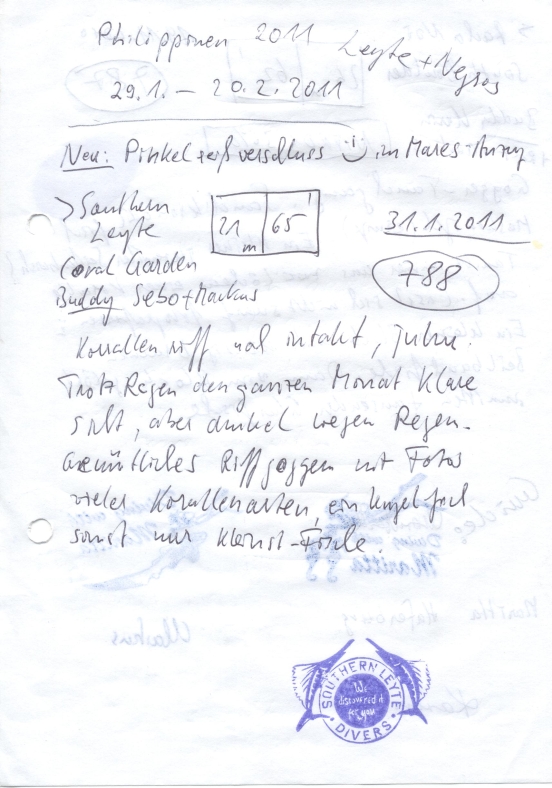 Philippinen 2011
Leyte + Negros
29.1. – 20.2.2011
Neu: Pinkelreißverschluss :) im Mares-Anzug
> Southern
Leyte
21 m
65'
31.1.2011
Coral Garden
788
Buddy Sebo + Markus
Korallenriff mal intakt, juhu.
Trotz Regen den ganzen Monat klare
Sicht, aber dunkel wegen Regen.
Gemütliches Riffjoggen mit Fotos
vieler Korallenarten, ein Kugelfisch
sonst nur Kleinst-Fische.
SOUTHERN LEYTE
We
discovered it
for you
• DIVERS •